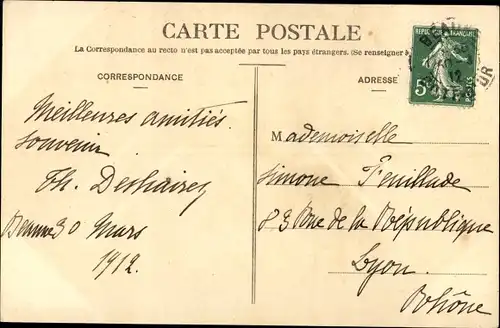 CARTE POSTALE
La Correspondance au recto n'est pas acceptée par tous les pays étrangers. (Se renseigner
CORRESPONDANCE
ADRESSE
REPUBLIQUE FRANÇAISE
5
POSTES
12
Meilleures amitiés.
Souvenir
Th. Deshaires
Beaune 30 Mars
1912.
Mademoiselle
Simone Feuillade
83 Rue de la République
Lyon
Rhône